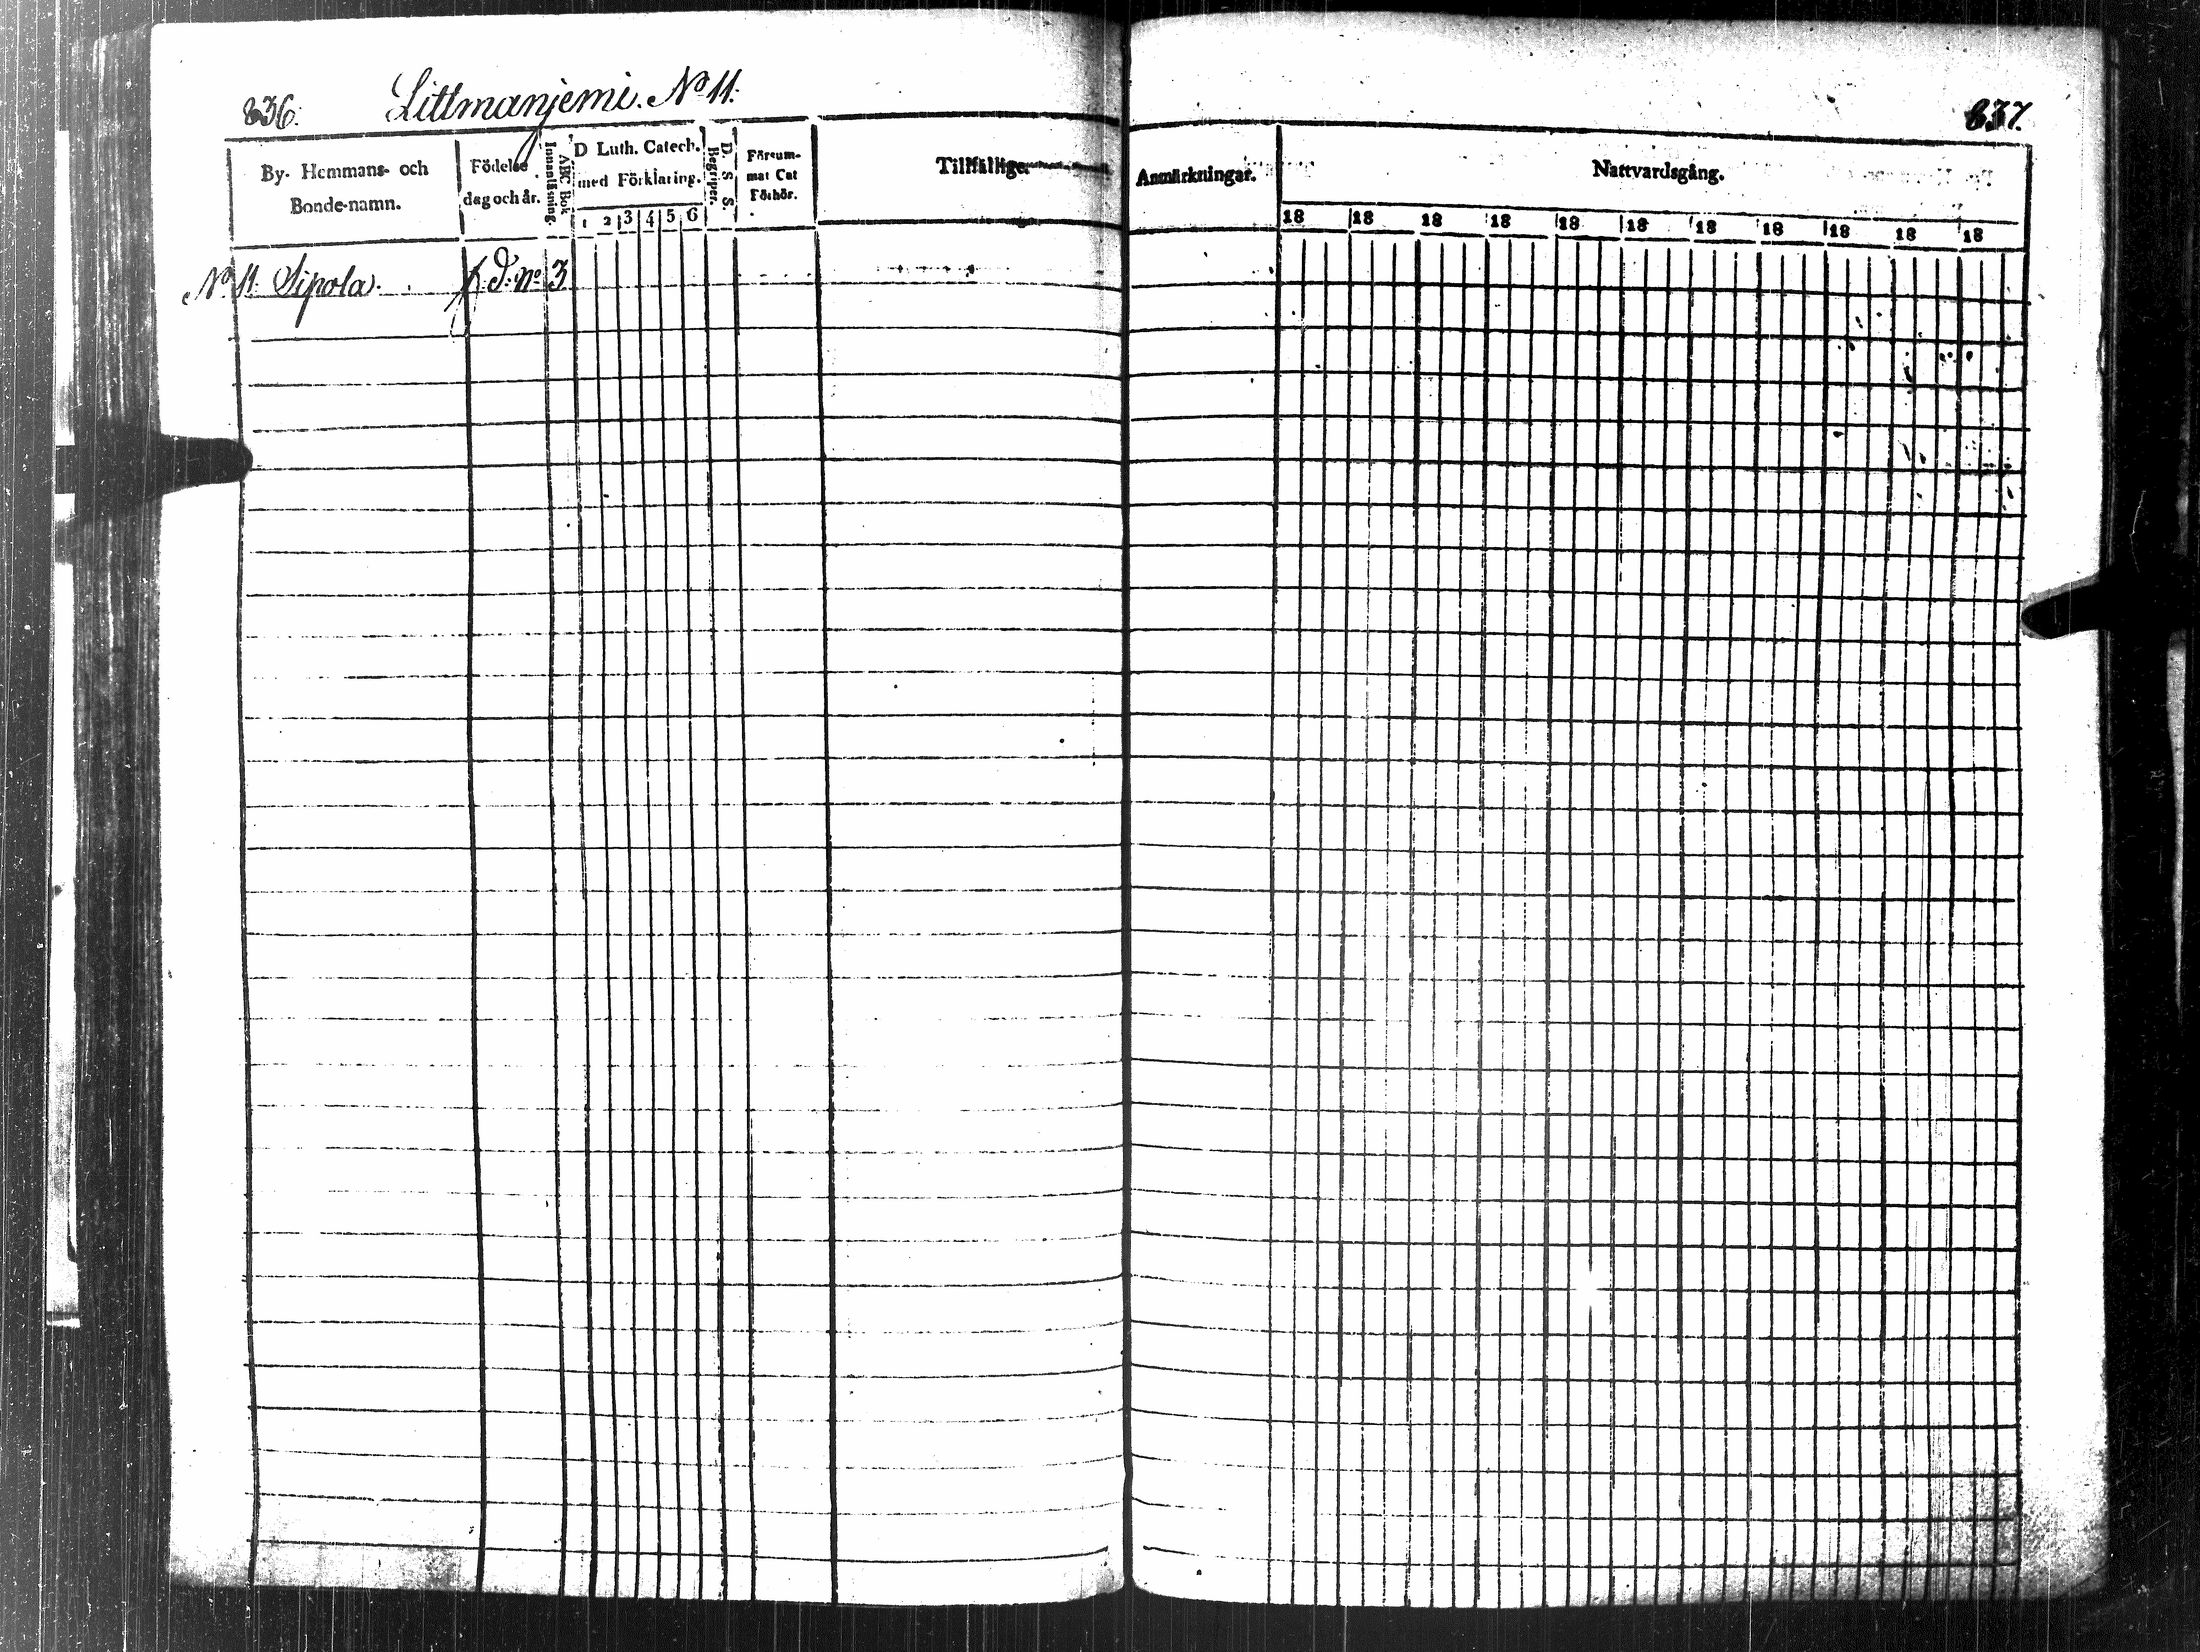 836.
Littmanjemi. No 11.
837.
By- Hemmans- och
Bonde-namn.
Födelse
dag och år.
Innanläsning.
ABC Bok
D Luth. Catech.
med Förklaring.
1 2 3 4 5 6
Begriper.
D. S. S.
Försum-
mat Cat
Förhör.
Tillfällige
Anmärkningar.
Nattvardsgång.
18 18 18 18 18 18 18 18 18 18 18
No 11. Sipola. No 3